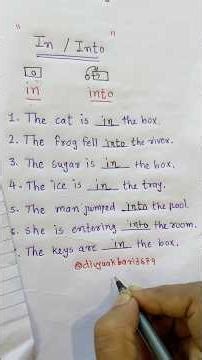 " In / Into "
in into
1. The cat is in the box.
2. The frog fell into the river.
3. The sugar is in the box.
4. The ice is in the tray.
5. The man jumped into the pool.
6. She is entering into the room.
The keys are in the box.